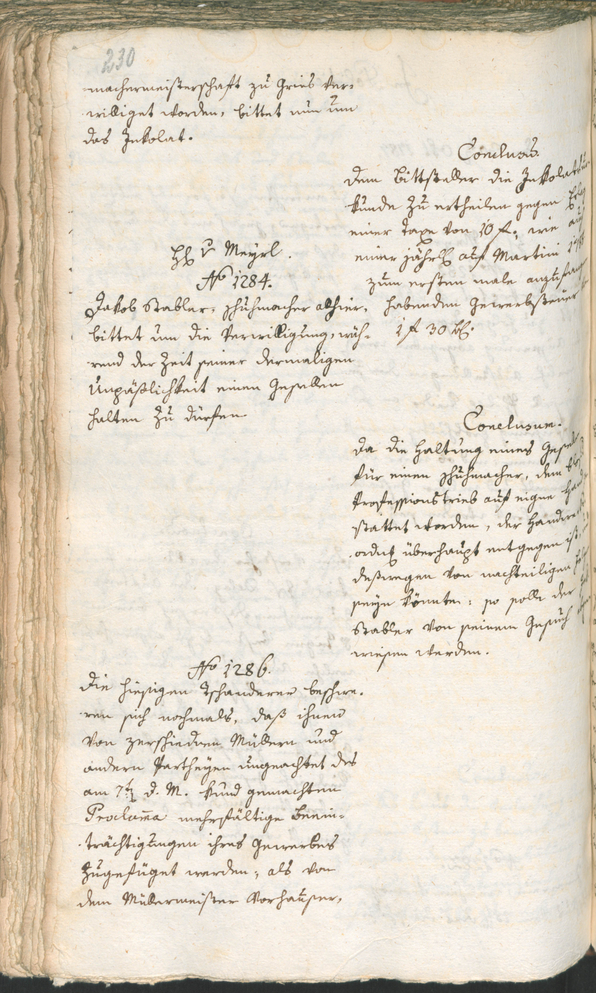 230
machermeisterschaft zu Gries ver-
williget worden, bittet nun um
das Inkolat.
Conclusum.
dem bittsteller die Inkolats
kunde zu ertheilen gegen
einer Taxe von 10 f., wie
einer jährl. auf Martini
zum ersten male
habenden Gewerbsteuer
1 f 30 kr.
H. v. Meyrl.
No 1284.
Jakob Stabler, schuhmacher alhier,
bittet um die Verwilligung, wäh-
rend der Zeit seiner dermaligen
Unpäßlichkeit einen Gesellen
halten zu dürfen
Conclusum.
Da die Haltung eines
für einen schuhmacher, dem
Professionstrieb auf eigne
stattet worden, der
überhaupt entgegen ist,
deßwegen von nachteiligen
seyn könnte: so solle der
Stabler von seinem Gesuch
wiesen werden.
No 1286.
Die hiesigen beschwe-
ren sich nochmals, daß ihnen
von zerschiednen Müllern und
andern Partheyen ungeachtet des
am 7t d. M. kund gemachten
Proclama mehrfältige Beein-
trächtigungen ihres Gewerbes
zugefüget werden, als von
dem Müllermeister Vorhauser,